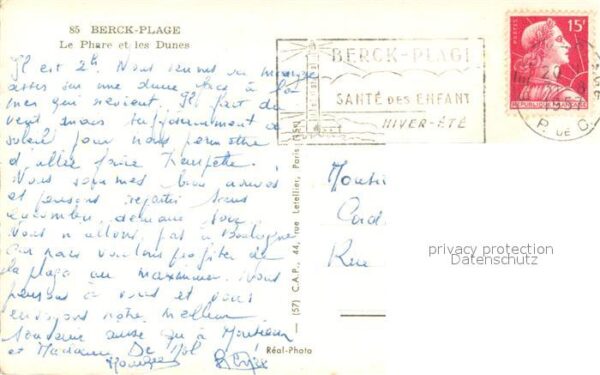 85 BERCK-PLAGE
Le Phare et les Dunes
Il est 2h. Nous venons de manger
assis sur une dune face à la
mer qui revient. Il fait du
vent mais suffisamment de
soleil pour nous permettre
d'aller faire trempette.
Nous sommes bien arrivés
et pensons repartir sans
encombre demain soir.
Nous n'allons pas à Boulogne
car nous voulons profiter de
la plage au maximum. Nous
pensons à vous et vous
envoyons notre meilleur
souvenir ainsi qu'à Monsieur
et Madame De
BERCK-PLAGE
SANTÉ DES ENFANT
HIVER-ÉTÉ
POSTES
15F
RÉPUBLIQUE FRANÇAISE
20
P. DE C.
(57) C.A.P., 44, rue Letellier, Paris (15e)
Monsi
Card
Rue
privacy protection
Datenschutz
Réal-Photo